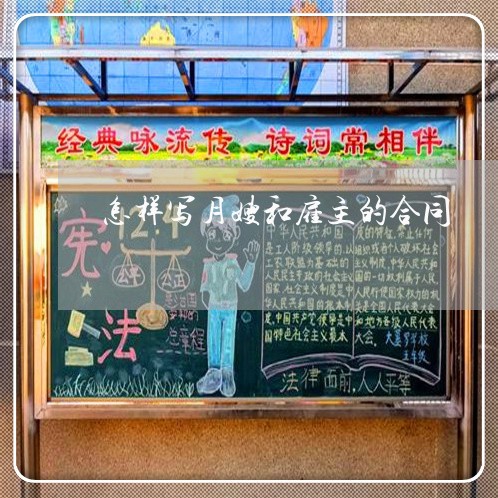 经典咏流传 诗词常相伴
怎样写月嫂和雇主的合同
宪法
12.4
公平
公正
总章程
中华人民共和国
是工人阶级领导的,以
工农联盟为基础的
人民民主专政的社会主义
国家,社会主义制度是中
华人民共和国的根本制
度,中国共产党领导是中
国特色社会主义最本
质的特征,禁止任何
组织或者个人破坏社会
主义制度,中华人民共和
国的一切权利属于人民,
人民行使国家权力的机
关是全国人民代表大会
和地方各级人民代表
大会。
五年级
法律面前,人人平等